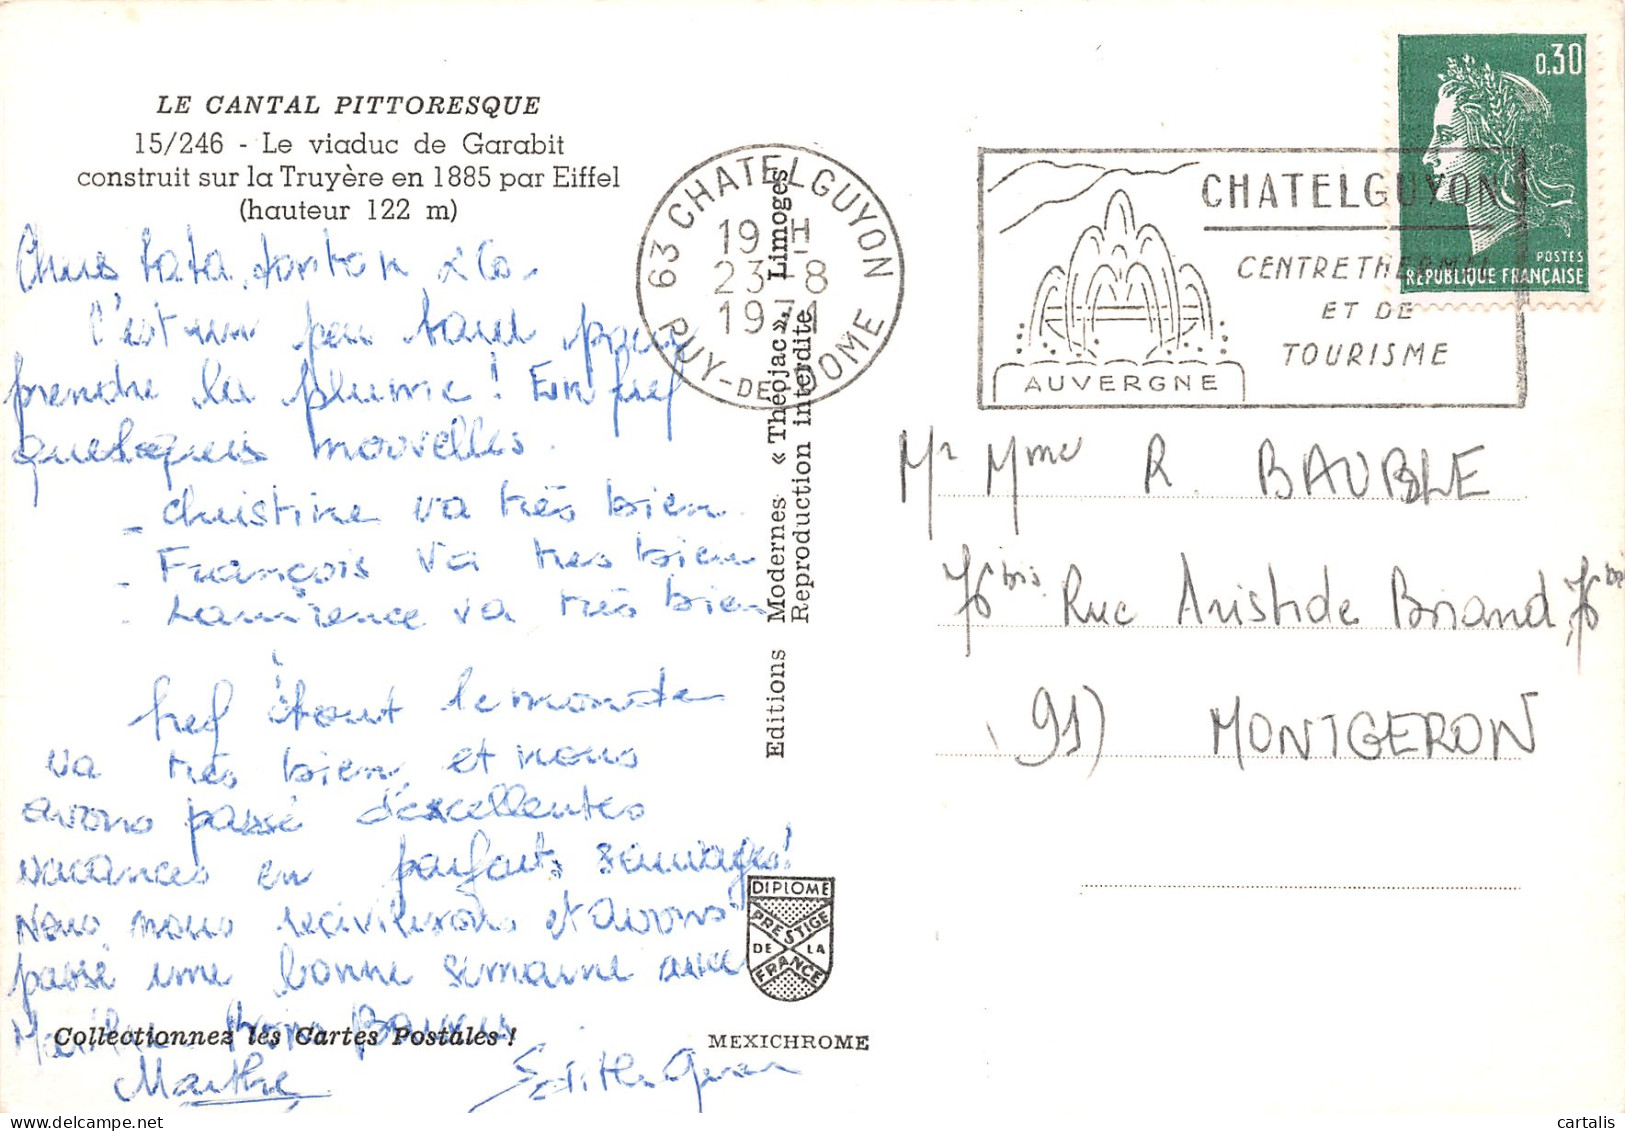 LE CANTAL PITTORESQUE
15/246 - Le viaduc de Garabit
construit sur la Truyère en 1885 par Eiffel
(hauteur 122 m)
Chers tata, tonton & Co.
C'est un peu tard pour
prendre la plume ! Enfin bref
quelques nouvelles.
- Christine va très bien
- François va très bien
- Laurence va très bien
bref tout le monde
va très bien et nous
avons passé d'excellentes
vacances en parfaits sauvages !
Nous nous recivilisons et avons
passé une bonne semaine avec
Bons Baisers
Marthe
Collectionnez les Cartes Postales !
Editions Modernes « Théojac », Limoges
Reproduction interdite
DIPLOME
PRESTIGE
DE LA
FRANCE
MEXICHROME
63 CHATELGUYON
19 H
23 - 8
1971
PUY-DE-DOME
CHATELGUYON
CENTRE THERMAL
ET DE
TOURISME
AUVERGNE
0,30
POSTES
RÉPUBLIQUE FRANÇAISE
Mr Mme R. BAUBLE
bis Rue Aristide Briand
(91) MONTGERON
cartalis